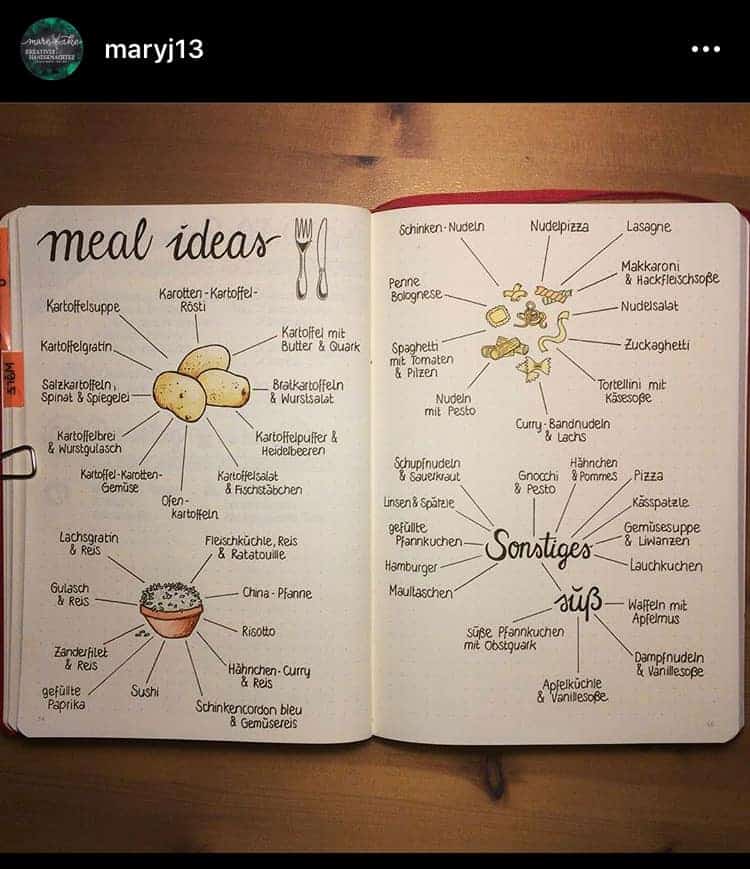 maryj13
KREATIVES
HANDGEMACHTES
meal ideas
Kartoffelsuppe
Karotten-Kartoffel-
Rösti
Kartoffel mit
Butter & Quark
Kartoffelgratin
Salzkartoffeln,
Spinat & Spiegelei
Bratkartoffeln
& Wurstsalat
Kartoffelbrei
& Wurstgulasch
Kartoffelpuffer &
Heidelbeeren
Kartoffel-Karotten-
Gemüse
Kartoffelsalat
& Fischstäbchen
Ofen-
kartoffeln
Lachsgratin
& Reis
Fleischküchle, Reis
& Ratatouille
Gulasch
& Reis
China-Pfanne
Risotto
Zanderfilet
& Reis
Hähnchen-Curry
& Reis
gefüllte
Paprika
Sushi
Schinkencordon bleu
& Gemüsereis
Schinken-Nudeln
Nudelpizza
Lasagne
Makkaroni
& Hackfleischsoße
Penne
Bolognese
Nudelsalat
Spaghetti
mit Tomaten
& Pilzen
Zuckaghetti
Tortellini mit
Käsesoße
Nudeln
mit Pesto
Curry-Bandnudeln
& Lachs
Schupfnudeln
& Sauerkraut
Gnocchi
& Pesto
Hähnchen
& Pommes
Pizza
Linsen & Spätzle
Kässpatzle
gefüllte
Pfannkuchen
Sonstiges
Gemüsesuppe
& Liwanzen
Hamburger
Lauchkuchen
Maultaschen
süß
Waffeln mit
Apfelmus
süße Pfannkuchen
mit Obstquark
Dampfnudeln
& Vanillesoße
Apfelküchle
& Vanillesoße